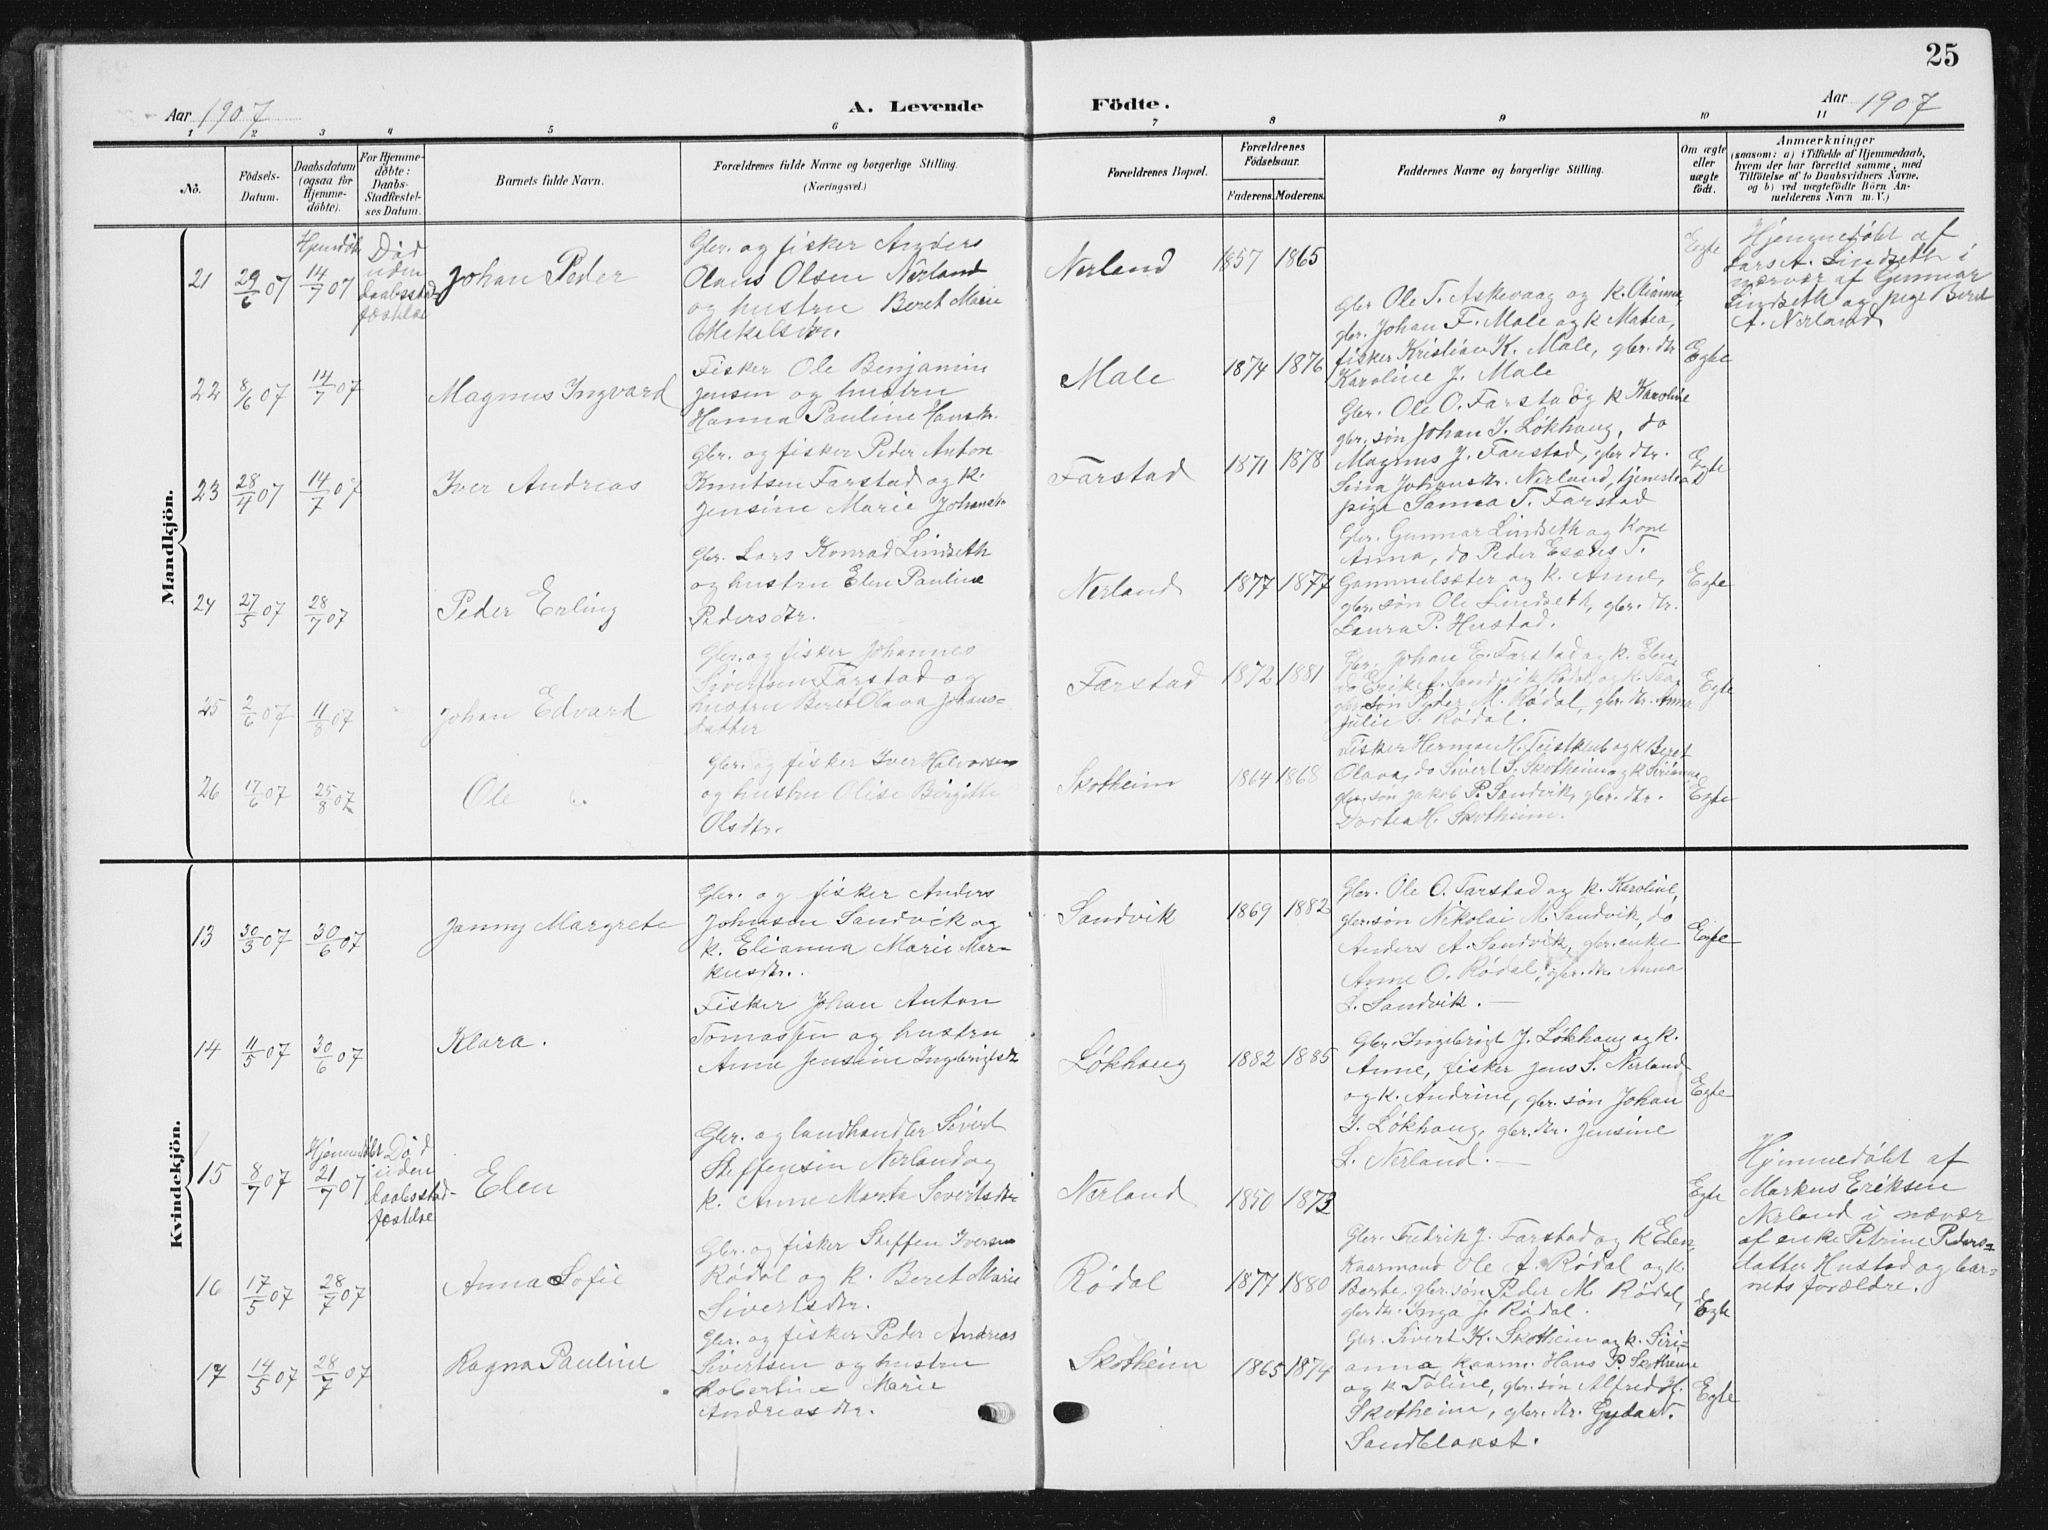 25
Aar 1907
A. Levende
Födte.
Aar 1907
1 2 3 4 5 6 7 8 9 10 11
No.
Födsels-
Datum.
Daabsdatum
(ogsaa for
Hjemme-
döbte).
For Hjemme-
döbte:
Daabs-
Stadfæstel-
ses Datum.
Barnets fulde Navn.
Forældrenes fulde Navne og borgerlige Stilling.
(Næringsvei.)
Forældrenes Bopæl.
Forældrenes
Födselsaar.
Faderens. Moderens.
Faddernes Navne og borgerlige Stilling.
Om ægte
eller
uægte
födt.
Anmærkninger
(saasom: a) i Tilfælde af Hjemmedaab,
hvem der har forrettet samme, med
Tilföielse af to Daabsvidners Navne,
og b) ved uægtefödte Börn An-
melderens Navn m. V.)
Mandkjön.
21
29/6 07
Hjemdöbt
14/7 07
Död
uden
daabsstad-
fæstelse
Johan Peder
Gbr. og fisker Anders
Olaus Olsen Nerland
og hustru Beret Marie
Mekalsdtr.
Nerland
1857 1865
Egte
Hjemmedöbt af
Lars A. Lindseth i
nærvær af Gunnar
Lindseth og pige Beret
A. Nerland
22
8/6 07
14/7 07
Magnus Ingvard
Fisker Ole Benjamin
Jensen og hustru
Hanna Pauline Hansdtr.
Male
1874 1876
Gbr Ole T. Askevaag og k. Olianna,
gbr. Johan F. Male og k Matea,
fisker Kristian K. Male, gbr. dtr
Karoline J. Male
Egte
23
28/4 07
14/7 07
Iver Andreas
Gbr. og fisker Peder Anton
Knutsen Farstad og k.
Jensine Marie Johansdtr
Farstad
1871 1878
Gbr. Ole O. Farstad og k Karoline
gbr. søn Johan I. Løkhaug, do
Magnus J. Farstad, gbr dtr.
Sina Johansdtr. Nerland, tjeneste
pige Sanna T. Farstad
Egte
24
27/5 07
28/7 07
Peder Erling
Gbr. Lars Konrad Lindseth
og hustru Elen Pauline
Pedersdtr.
Nerland
1877 1877
Gbr. Gunnar Lindseth og kone
Anna, do Peder T.
Gammelsæter og k. Anne,
gbr. søn Ole Lindseth, gbr. dtr.
Laura P. Hustad.
Egte
25
2/6 07
11/8 07
Johan Edvard
Gbr. og fisker Johannes
Sivertsen Farstad og
hustru Beret Olava Johans-
datter
Farstad
1872 1881
Gbr. Johan E. Farstad og k. Elen,
do Erik A. Sandvik Rødal, og k.
gbr søn Peder M. Rødal, gbr. dtr. Anna
Julie S. Rødal.
Egte
26
17/6 07
25/8 07
Ole
Gbr. og fisker Iver Halvorsen
og hustru Olise Birgitte
Olsdtr.
Skotheim
1864 1868
Fisker Herman H. og k Beret
Olava, do Sivert S. Skotheim og k Sirianna
gbr. søn Jakob P. Sandvik, gbr. dtr.
Dortea H. Skotheim.
Egte
Kvindekjön.
13
30/3 07
30/6 07
Janny Margrete
Gbr. og fisker Anders
Johnsen Sandvik og
k. Elianna Marie Mar-
kusdtr.
Sandvik
1869 1882
Gbr. Ole O. Farstad og k. Karoline,
gbr. søn Nikolai M. Sandvik, do
Anders A. Sandvik, gbr. enke
Anne O. Rødal, gbr. dtr. Anna
L. Sandvik. —
Egte
14
11/5 07
30/6 07
Klara.
Fisker Johan Anton
Tomassen og hustru
Anne Jensine Ingebrigtsdtr
Løkhaug
1882 1885
Gbr. Ingebrigt J. Løkhaug og k.
Anne, fisker Jens S. Nerland
og k. Andrine, gbr. søn Johan
I. Løkhaug, gbr. dtr. Jensine
L. Nerland. —
Egte
15
8/7 07
Hjemmdöbt
21/7 07
Död
uden
daabsstad-
fæstelse
Elen
Gbr. og landhandler Sivert
Steffensen Nerland og
k. Anne Marta Sivertsdtr
Nerland
1850 1873
Egte
Hjemmedöbt af
Markus Eriksen
Nerland i nærvær
af enke Petrine Peders-
datter Hustad og bar-
nets forældre.
16
17/5 07
28/7 07
Anna Sofie
Gbr. og fisker Steffen Iversen
Rødal og k. Beret Marie
Sivertsdtr.
Rødal
1877 1880
Gbr. Fredrik J. Farstad og k Elen,
Kaarmand Ole A. Rødal og k.
Berte, gbr. søn Peder M. Rødal,
gbr dtr. Inga J. Rødal.
Egte
17
14/5 07
28/7 07
Ragna Pauline
Gbr. og fisker Peder Andreas
Sivertsen og hustru
Robertine Marie
Andreasdtr.
Skotheim
1865 1874
Gbr. Sivert K. Skotheim og k. Siri-
anna kaarm. Hans P. Skotheim
og k Toline, gbr. søn Alfred H.
Skotheim, gbr. dtr. Gyda T.
Sandblaast.
Egte